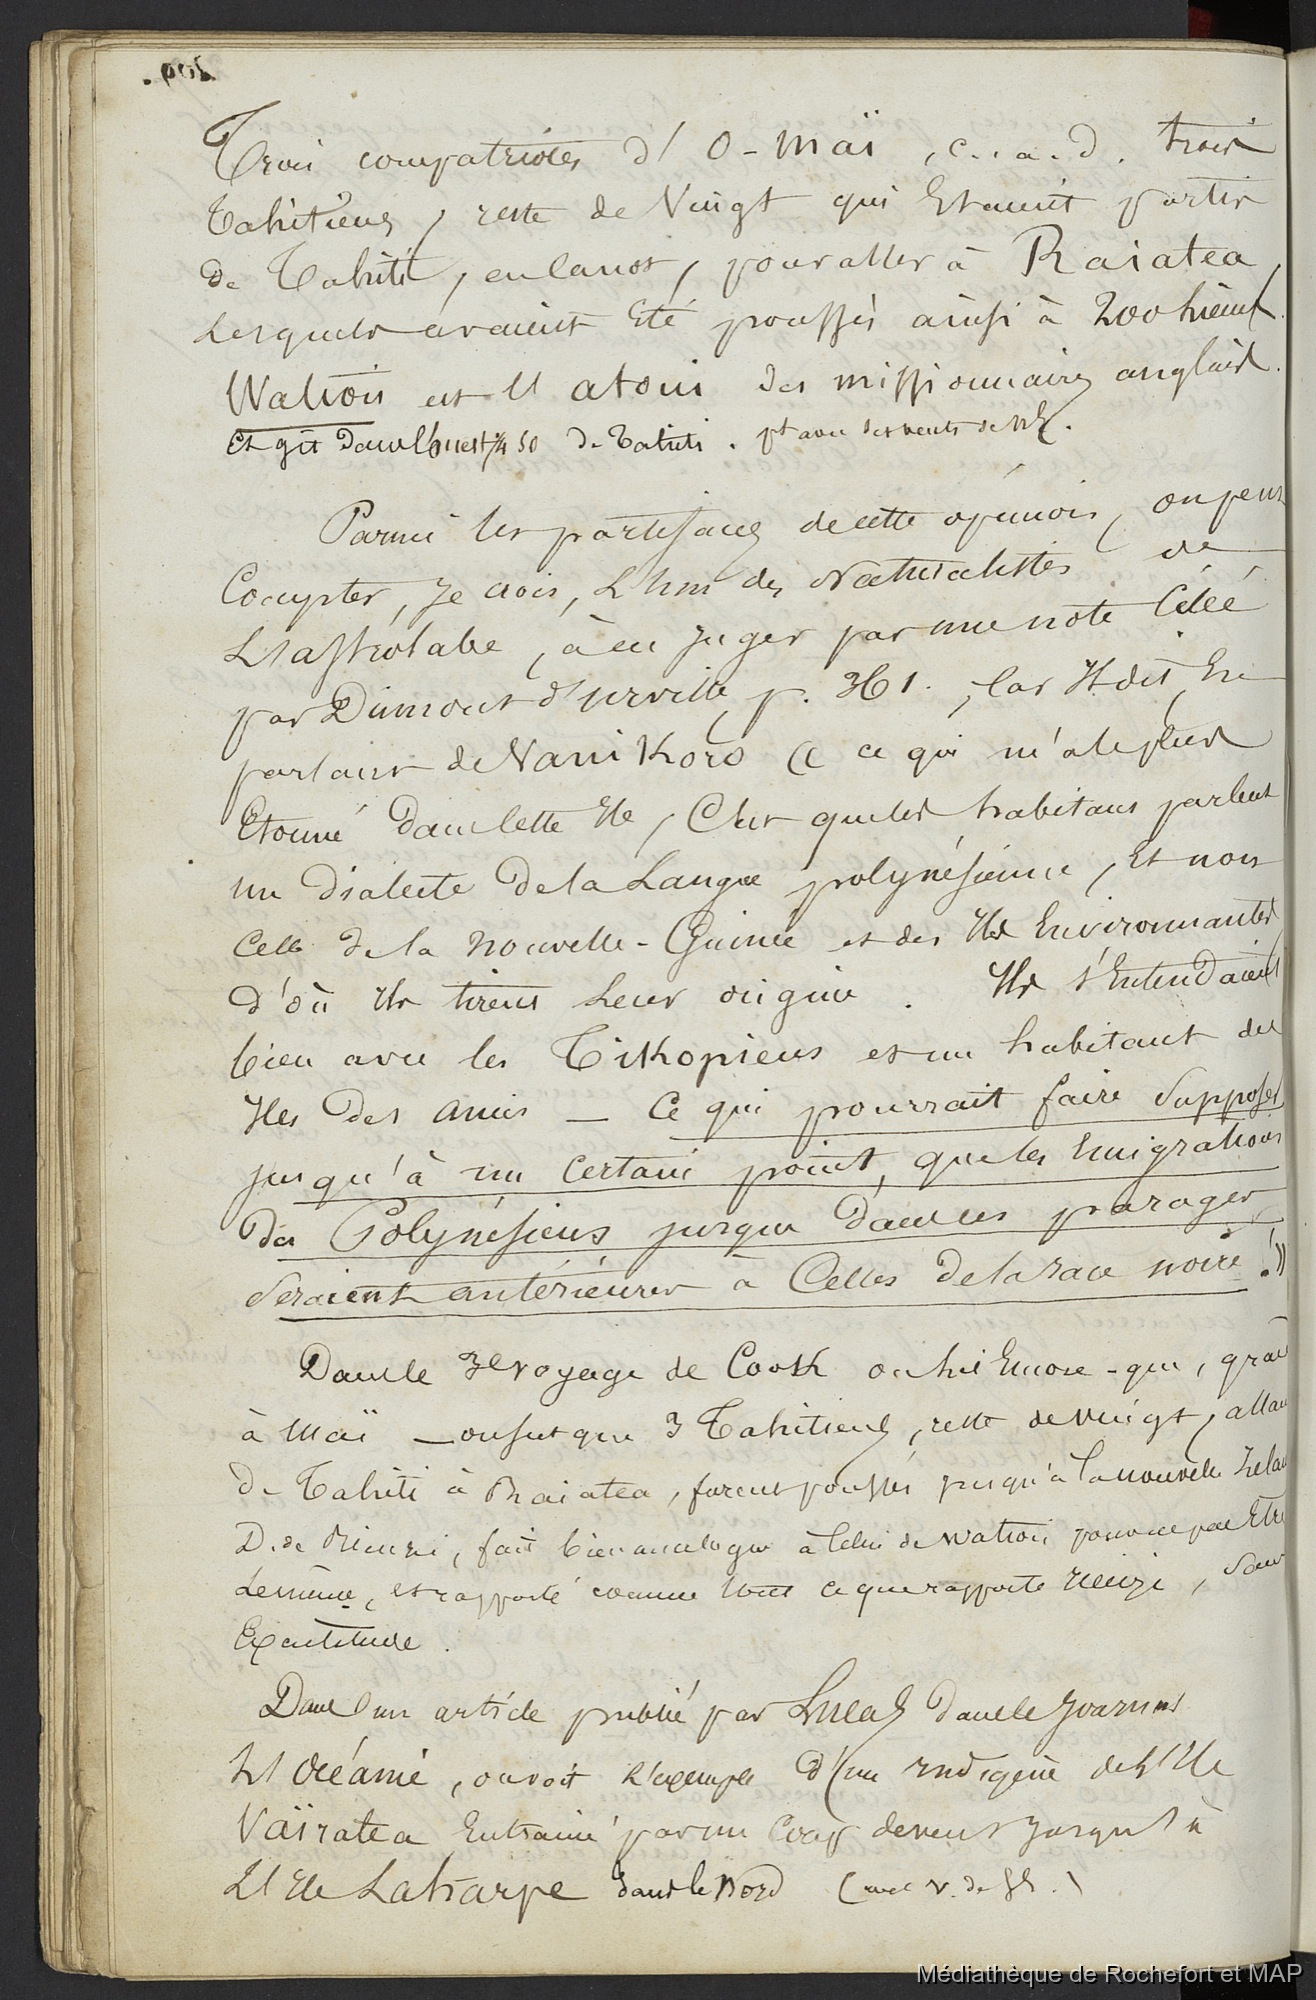 209.
Trois compatriotes d'O-Maï, c.. a. d. trois
Tahitiens, reste de Vingt qui Etaient partis
de Tahiti, en Canot, pour aller à Raiatea,
Lesquels avaient Eté poussés ainsi à 200 lieues.
Watiou est l'atoui des missionnaires anglais.
Et gît dans l'ouest 1/4 SO de Tahiti. pt avec des vents de NE.
Parmi les partisans de cette opinion, on peut
Compter, Je crois, L'un des Naturalistes de
L'astrolabe, à en juger par une note Citée
par Dumont d'urville p. 361. , Car Il dit, En
parlant de Vanikoro « ce qui m'a le plus
Etonné dans Cette Ile, C'est que les habitans parlent
un Dialecte de la Langue polynésienne, Et non
Celle de la Nouvelle-Guinée et des Iles Environnantes,
d'où Ils tirent Leur origine. Ils s'Entendaient
bien avec les Tikopiens et un habitant des
Iles des Amis — Ce qui pourrait faire Supposer
jusqu'à un Certain point, que les Emigrations
des Polynésiens jusque dans ces parages
Seraient antérieures à Celles de la race noire ! »
Dans le 3e voyage de Cook on lui Encore - que, grace
à Maï — on sut que 3 Tahitiens, reste de vingt, allant
de Tahiti à Raiatea, furent poussés jusqu'à la nouvelle Zelan
D. de Rienzi, fait bien analogue à Celui de Watiou pour ne pas Etre
Le même, est rapporté comme tout ce que rapporte Rienzi, Sans
Exactitude.
Dans un article publié par Lucas dans le Journal
L'Océanie, on voit L'exemple d'un Indigène de L'Ile
Vaïratea Entrainé par un Coup de vent Jusqu'à
L'Ile Laharpe dans le Nord (avec v. de SE.)
Médiathèque de Rochefort et MAP